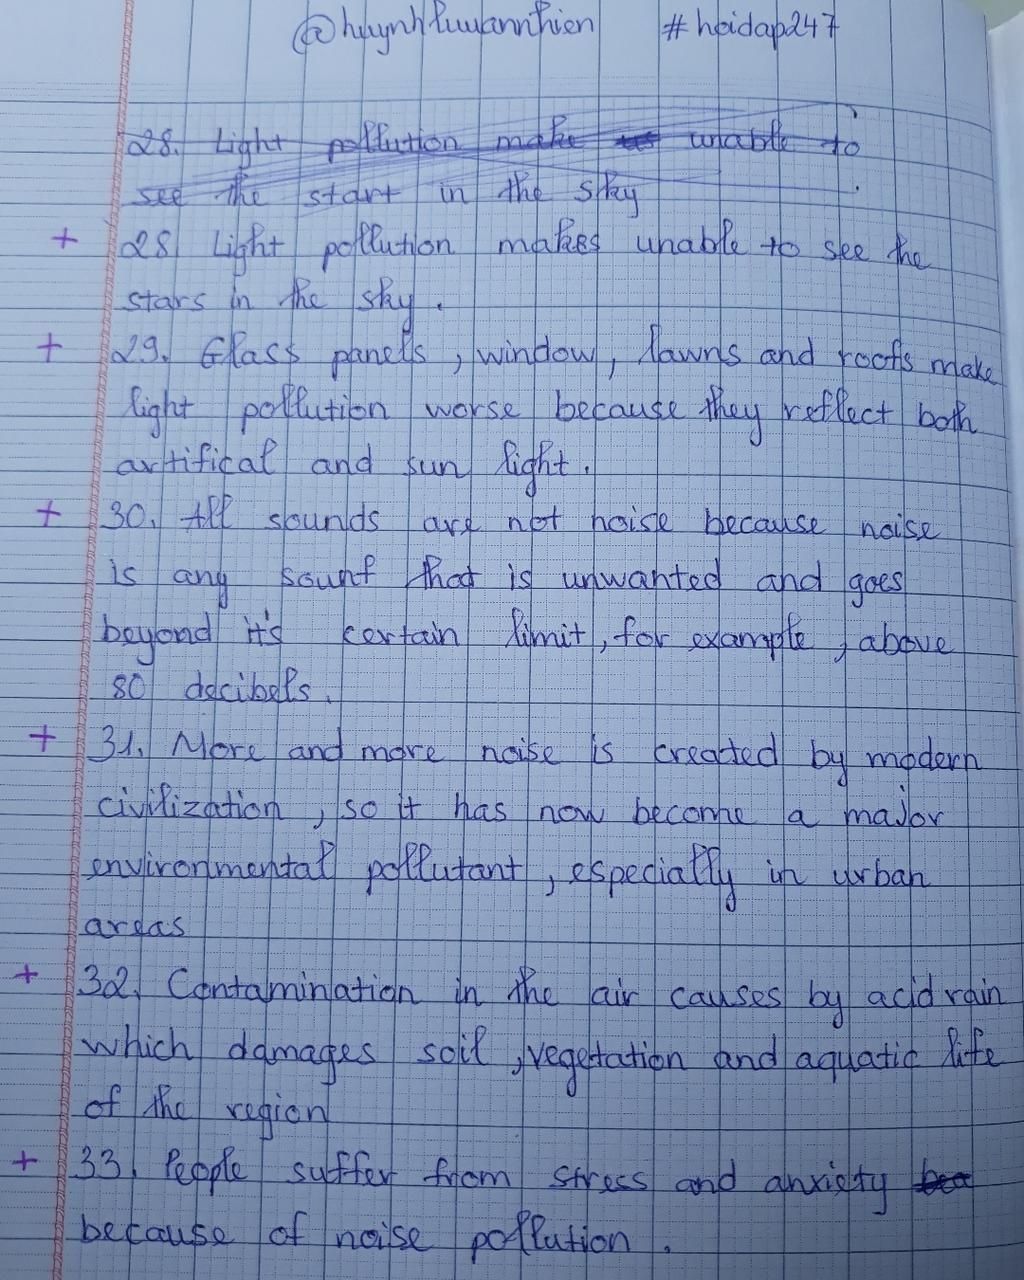 @huynhtuyannhien #hoidap247
28. Light pollution make unable to
see the start in the sky
+ 28 Light pollution makes unable to see the
stars in the sky.
+ 29. Glass panels, window, lawns and roofs make
light pollution worse because they reflect both
artifical and sun light.
+ 30. All sounds are not noise because noise
is any sount that is unwanted and goes
beyond it's certain limit, for example, above
80 decibels.
+ 31. More and more noise is created by modern
civilization, so it has now become a major
environmental pollutant, especially in urban
areas
+ 32. Contamination in the air causes by acid rain
which damages soil, vegetation and aquatic life
of the region
+ 33. People suffer from stress and anxiety
because of noise pollution.